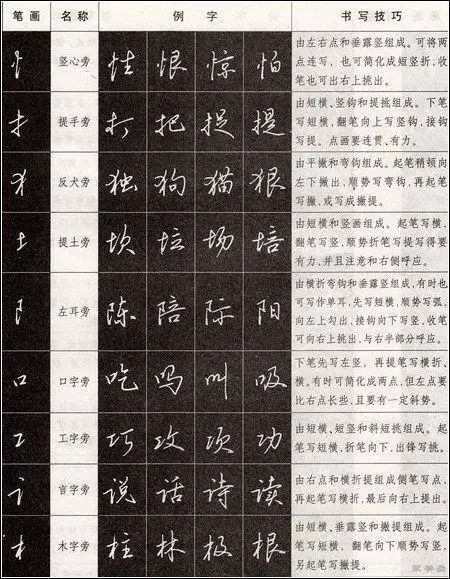 笔画 名称 例字 书写技巧
忄 竖心旁 恨 惊 怕
由左右点和垂露竖组成。可将两
点连写，也可简化成短竖折，收
笔也可出右上挑出。
扌 提手旁 打 把 捉 提
由短横、竖钩和提挑组成。下笔
写短横，翻笔向上写竖钩，接钩
写提。点画要连贯、有力。
犭 反犬旁 独 狗 猫 狠
由平撇和弯钩组成。起笔稍顿向
左下撇出，顺势写弯钩，再起笔
写撇，或写成撇提。
土 提土旁 坎 垃 场 培
由短横和竖画组成。起笔写横，
翻笔写竖，顺势折笔写提写得要
有力，并且注意和右侧呼应。
阝 左耳旁 陈 陪 际 阳
由横折弯钩和垂露竖组成，有时也
可写作单耳，先写短横，顺势写弧，
向左上勾出，接钩向下写竖，收笔
可向右上挑出，与右半部分呼应。
口 口字旁 吃 吗 叫 吸
下笔先写左竖，再提笔写横折、
横。有时可简化成两点，但左点要
比右点长些，且要有一定斜势。
工 工字旁 巧 攻 项 功
由短横、短竖和斜短挑组成。起
笔写短横，折笔向下，出锋写挑。
讠 言字旁 说 话 诗 读
由右点和横折提组成侧笔写点，
再起笔写横折，最后向右上提出。
木 木字旁 柱 林 极 根
由短横、垂露竖和撇提组成。起
笔写短横，翻笔向下顺势写竖，
另起笔写撇提。